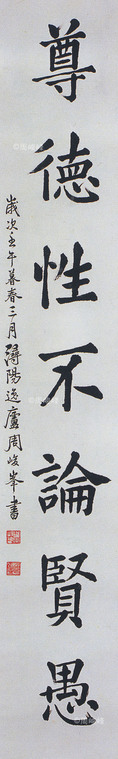 尊德性不論賢愚
歲次壬午暮春三月潯陽逸廬周峻峯書